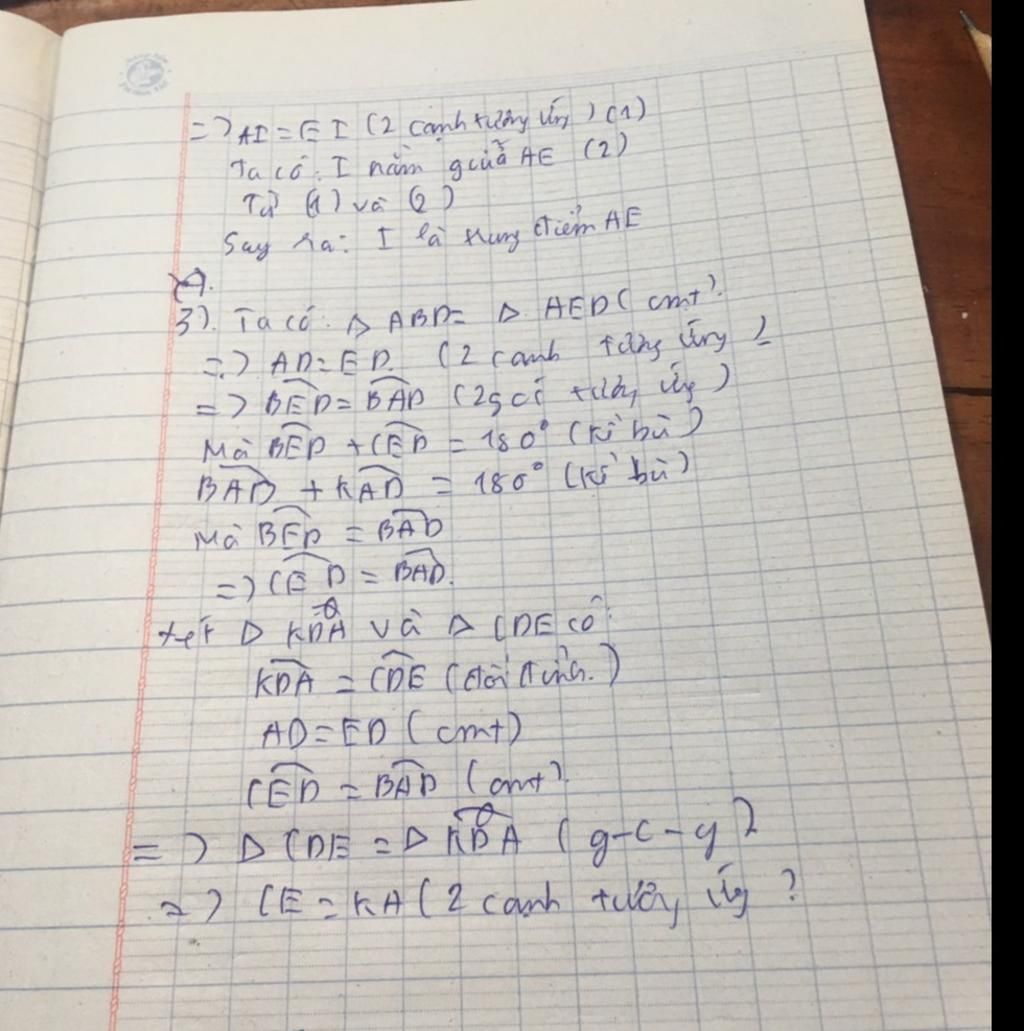 => AI = EI (2 cạnh tương ứng) (1)
Ta có: I nằm giữa AE (2)
Từ (1) và (2)
Say ra: I là trung điểm AE
3). Ta có: Δ ABD = Δ AED (cmt)
=> AD = ED. (2 cạnh tương ứng)
=> BED = BAD (2 góc tương ứng)
Mà BED + CED = 180° (kề bù)
BAD + KAD = 180° (kề bù)
Mà BED = BAD
=> CED = BAD.
xét Δ KDA và Δ CDE có:
KDA = CDE (đối đỉnh.)
AD = ED (cmt)
CED = BAD (cmt).
=> Δ CDE = Δ KDA (g-c-g)
=> CE = KA (2 cạnh tương ứng)